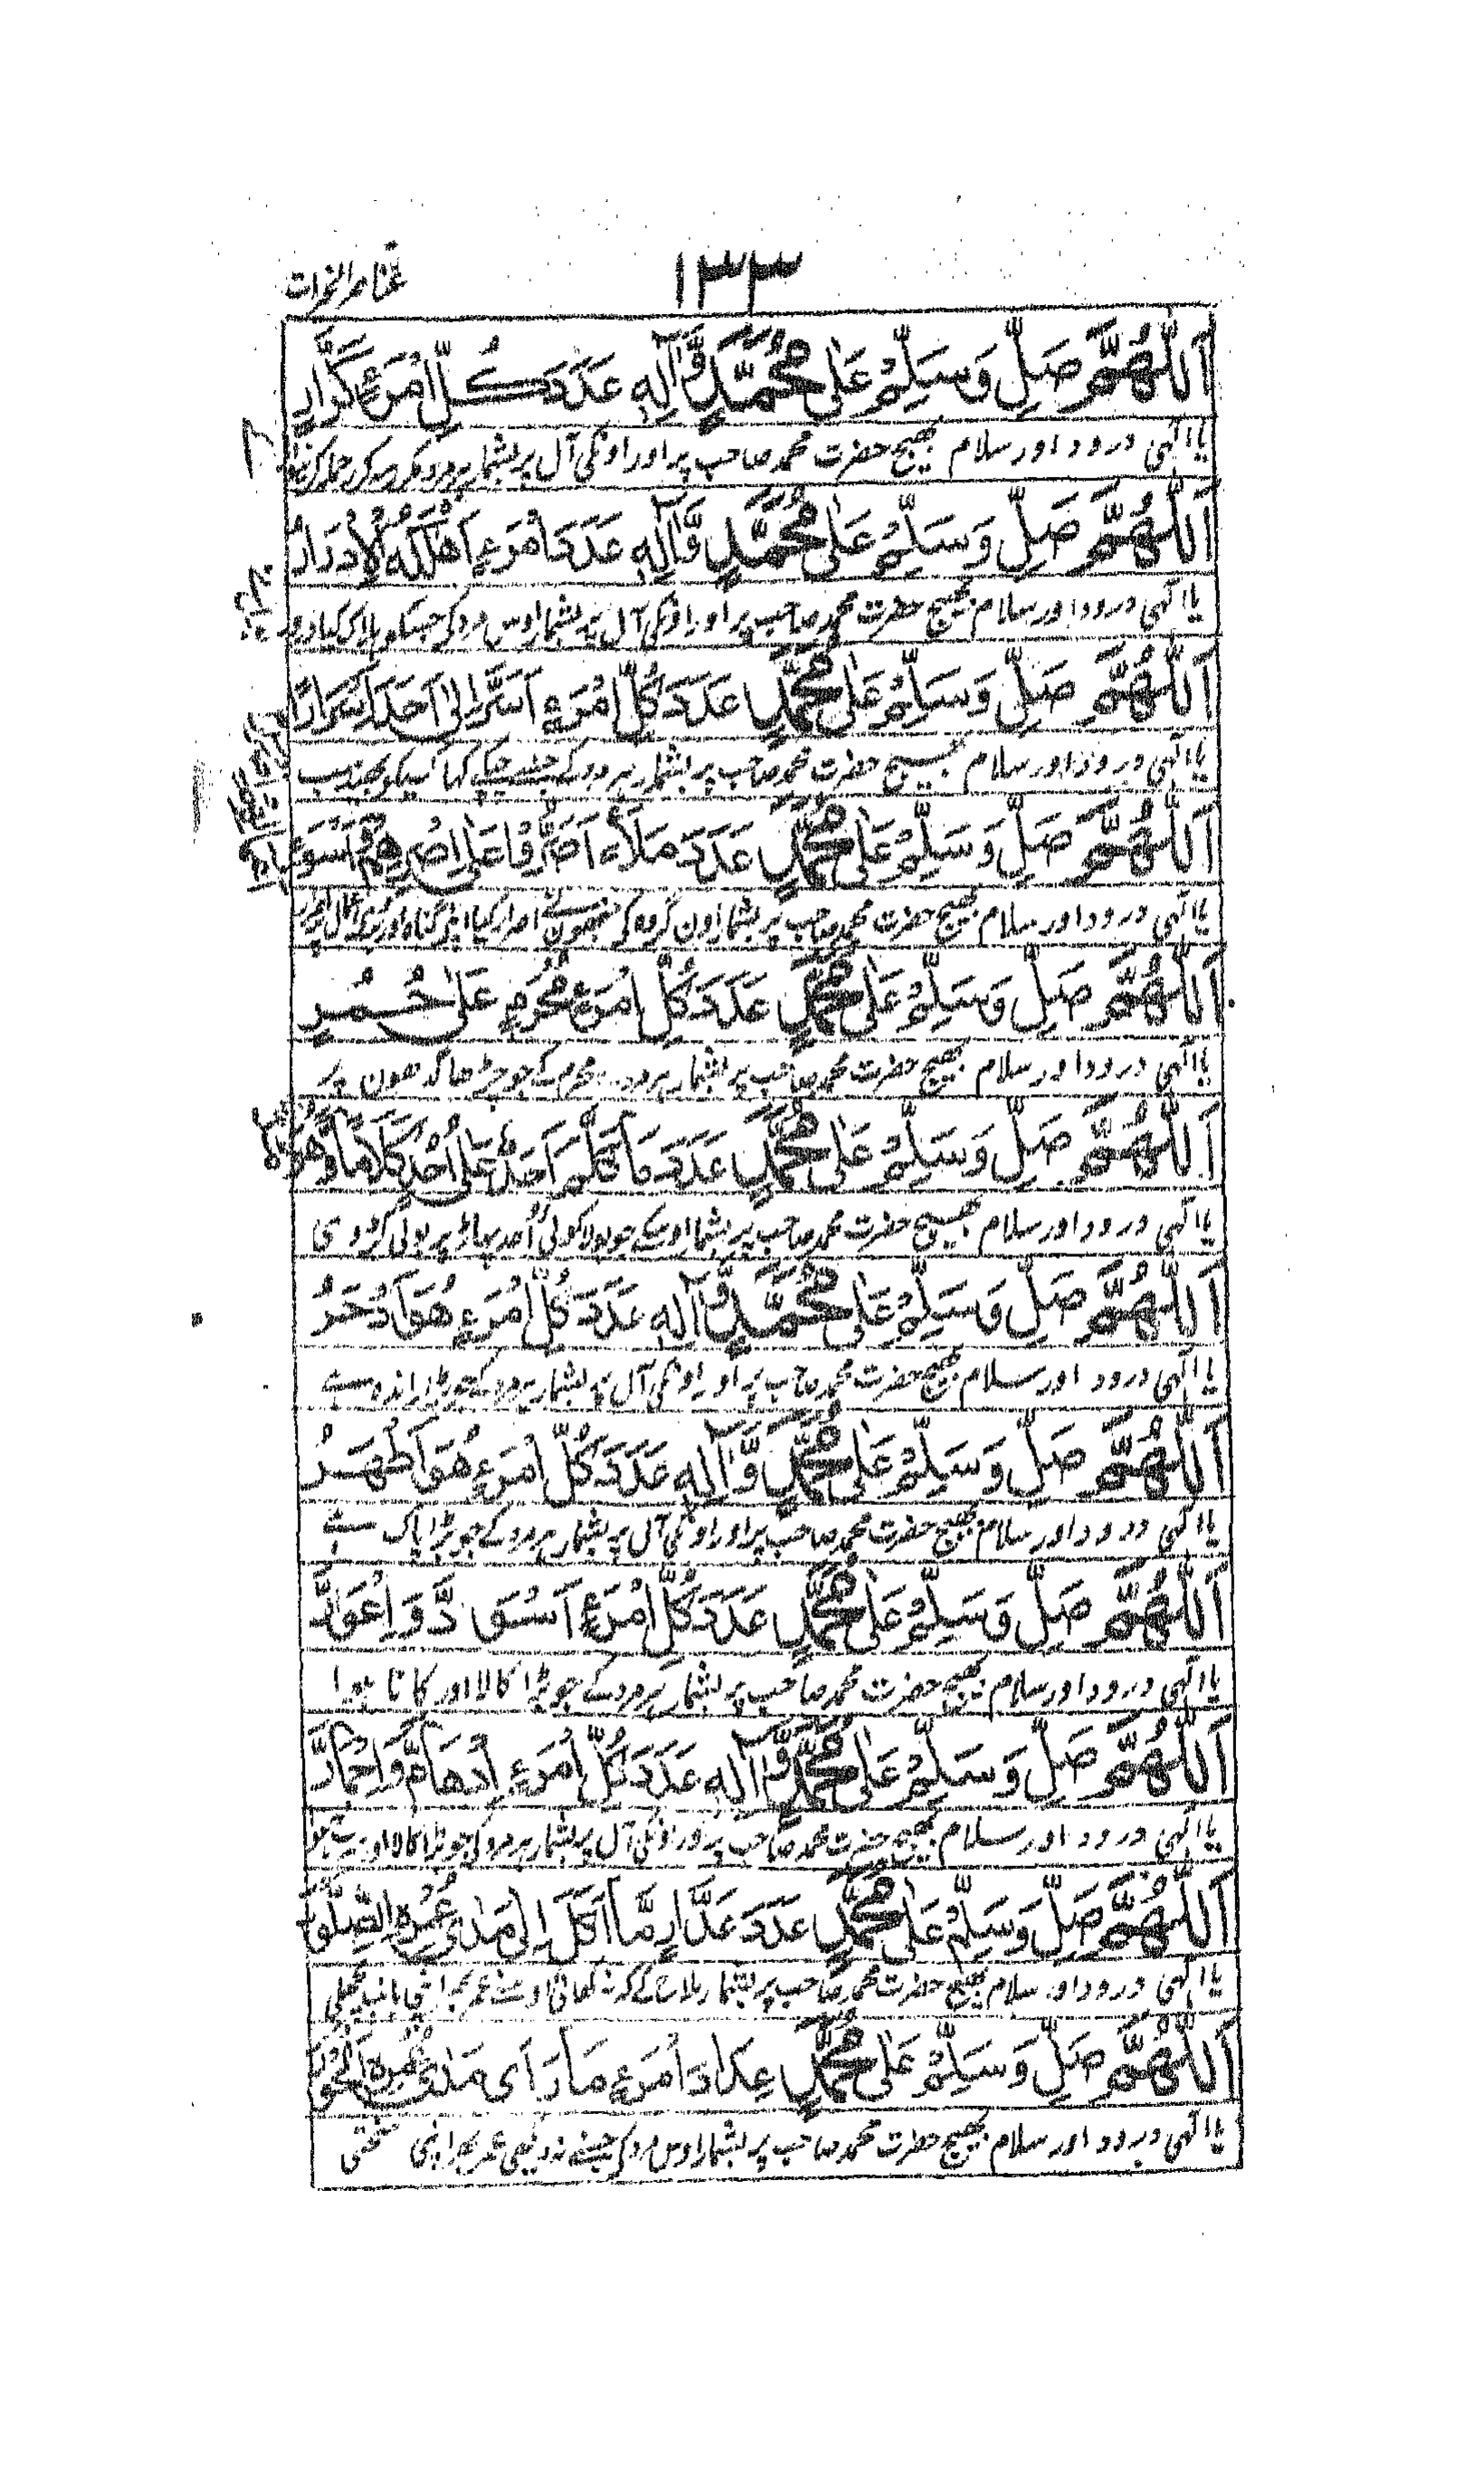 ١٣٣
عناصر الخیرات
اَللّٰهُمَّ صَلِّ وَسَلِّمْ عَلٰی مُحَمَّدٍ وَّاٰلِهٖ عَدَدَ كُلِّ امْرَءٍ كَرَّارٍ
یا الٰہی درود اور سلام بھیج حضرت محمد صاحب پر اور اونکی آل پر بشمار ہر مرد
اَللّٰهُمَّ صَلِّ وَسَلِّمْ عَلٰی مُحَمَّدٍ وَّاٰلِهٖ عَدَدَ امْرَءٍ اَهْلَكَهُ
یا الٰہی درود اور سلام بھیج حضرت محمد صاحب پر اور اونکی آل پر بشمار اوس مرد کی جسکو ہلاک کیا
اَللّٰهُمَّ صَلِّ وَسَلِّمْ عَلٰی مُحَمَّدٍ عَدَدَ كُلِّ امْرَءٍ اَسَرَّ اِلٰی اَحَدٍ اَسْرَارًا
یا الٰہی درود اور سلام بھیج حضرت محمد صاحب پر بشمار ہر مرد کے جسنے چپکے کہا کسیکو بھید
اَللّٰهُمَّ صَلِّ وَسَلِّمْ عَلٰی مُحَمَّدٍ عَدَدَ مَلَاٴٍ اَصَرُّوْا عَلٰی
یا الٰہی درود اور سلام بھیج حضرت محمد صاحب پر بشمار اون گروہ کی جنھوں نے اصرار کیا اپنے گناہ اور
اَللّٰهُمَّ صَلِّ وَسَلِّمْ عَلٰی مُحَمَّدٍ عَدَدَ كُلِّ امْرَءٍ مُحْرِمٍ عَلٰی حُمُرٍ
یا الٰہی درود اور سلام بھیج حضرت محمد صاحب پر بشمار ہر مرد محرم کے جو چڑھا گدھون پر
اَللّٰهُمَّ صَلِّ وَسَلِّمْ عَلٰی مُحَمَّدٍ عَدَدَ مَا تَكَلَّمَ اَحَدٌ عَلٰی اُحُدٍ كَلَامًا
یا الٰہی درود اور سلام بھیج حضرت محمد صاحب پر بشمار اوسکے جو بولا کوئی اُحد پہاڑ پر بولی کڑوی
اَللّٰهُمَّ صَلِّ وَسَلِّمْ عَلٰی مُحَمَّدٍ وَّاٰلِهٖ عَدَدَ كُلِّ امْرَءٍ هُوَ اَدْحَرُ
یا الٰہی درود اور سلام بھیج حضرت محمد صاحب پر اور اونکی آل پر بشمار ہر مرد کے جو بڑا راندہ ہے
اَللّٰهُمَّ صَلِّ وَسَلِّمْ عَلٰی مُحَمَّدٍ وَّاٰلِهٖ عَدَدَ كُلِّ امْرَءٍ هُوَ اَطْهَرُ
یا الٰہی درود اور سلام بھیج حضرت محمد صاحب پر اور اونکی آل پر بشمار ہر مرد کے جو بڑا پاک ہے
اَللّٰهُمَّ صَلِّ وَسَلِّمْ عَلٰی مُحَمَّدٍ عَدَدَ كُلِّ امْرَءٍ اسْوَدَّ وَاعْوَرَّ
یا الٰہی درود اور سلام بھیج حضرت محمد صاحب پر بشمار ہر مرد کے جو بڑا کالا اور کانا ہوا
اَللّٰهُمَّ صَلِّ وَسَلِّمْ عَلٰی مُحَمَّدٍ وَّاٰلِهٖ عَدَدَ كُلِّ امْرَءٍ اِدْهَامَّ وَاحْمَارَّ
یا الٰہی درود اور سلام بھیج حضرت محمد صاحب پر اور اونکی آل پر بشمار ہر مرد کی جو بڑا کالا اور
اَللّٰهُمَّ صَلِّ وَسَلِّمْ عَلٰی مُحَمَّدٍ عَدَدَ مَّا اَكَلَ اِلٰی مَدٰی عُمْرِهِ
یا الٰہی درود اور سلام بھیج حضرت محمد صاحب پر بشمار کہ نہ کھائی اوسنے عمر بھر اپنی مچھلی
اَللّٰهُمَّ صَلِّ وَسَلِّمْ عَلٰی مُحَمَّدٍ عِدَادَ امْرَءٍ مَا رَاٰی مَدٰی عُمْرِهِ
یا الٰہی درود اور سلام بھیج حضرت محمد صاحب پر بشمار اوس مرد کی جسنے نہ دیکھی عمر بھر اپنی سختی